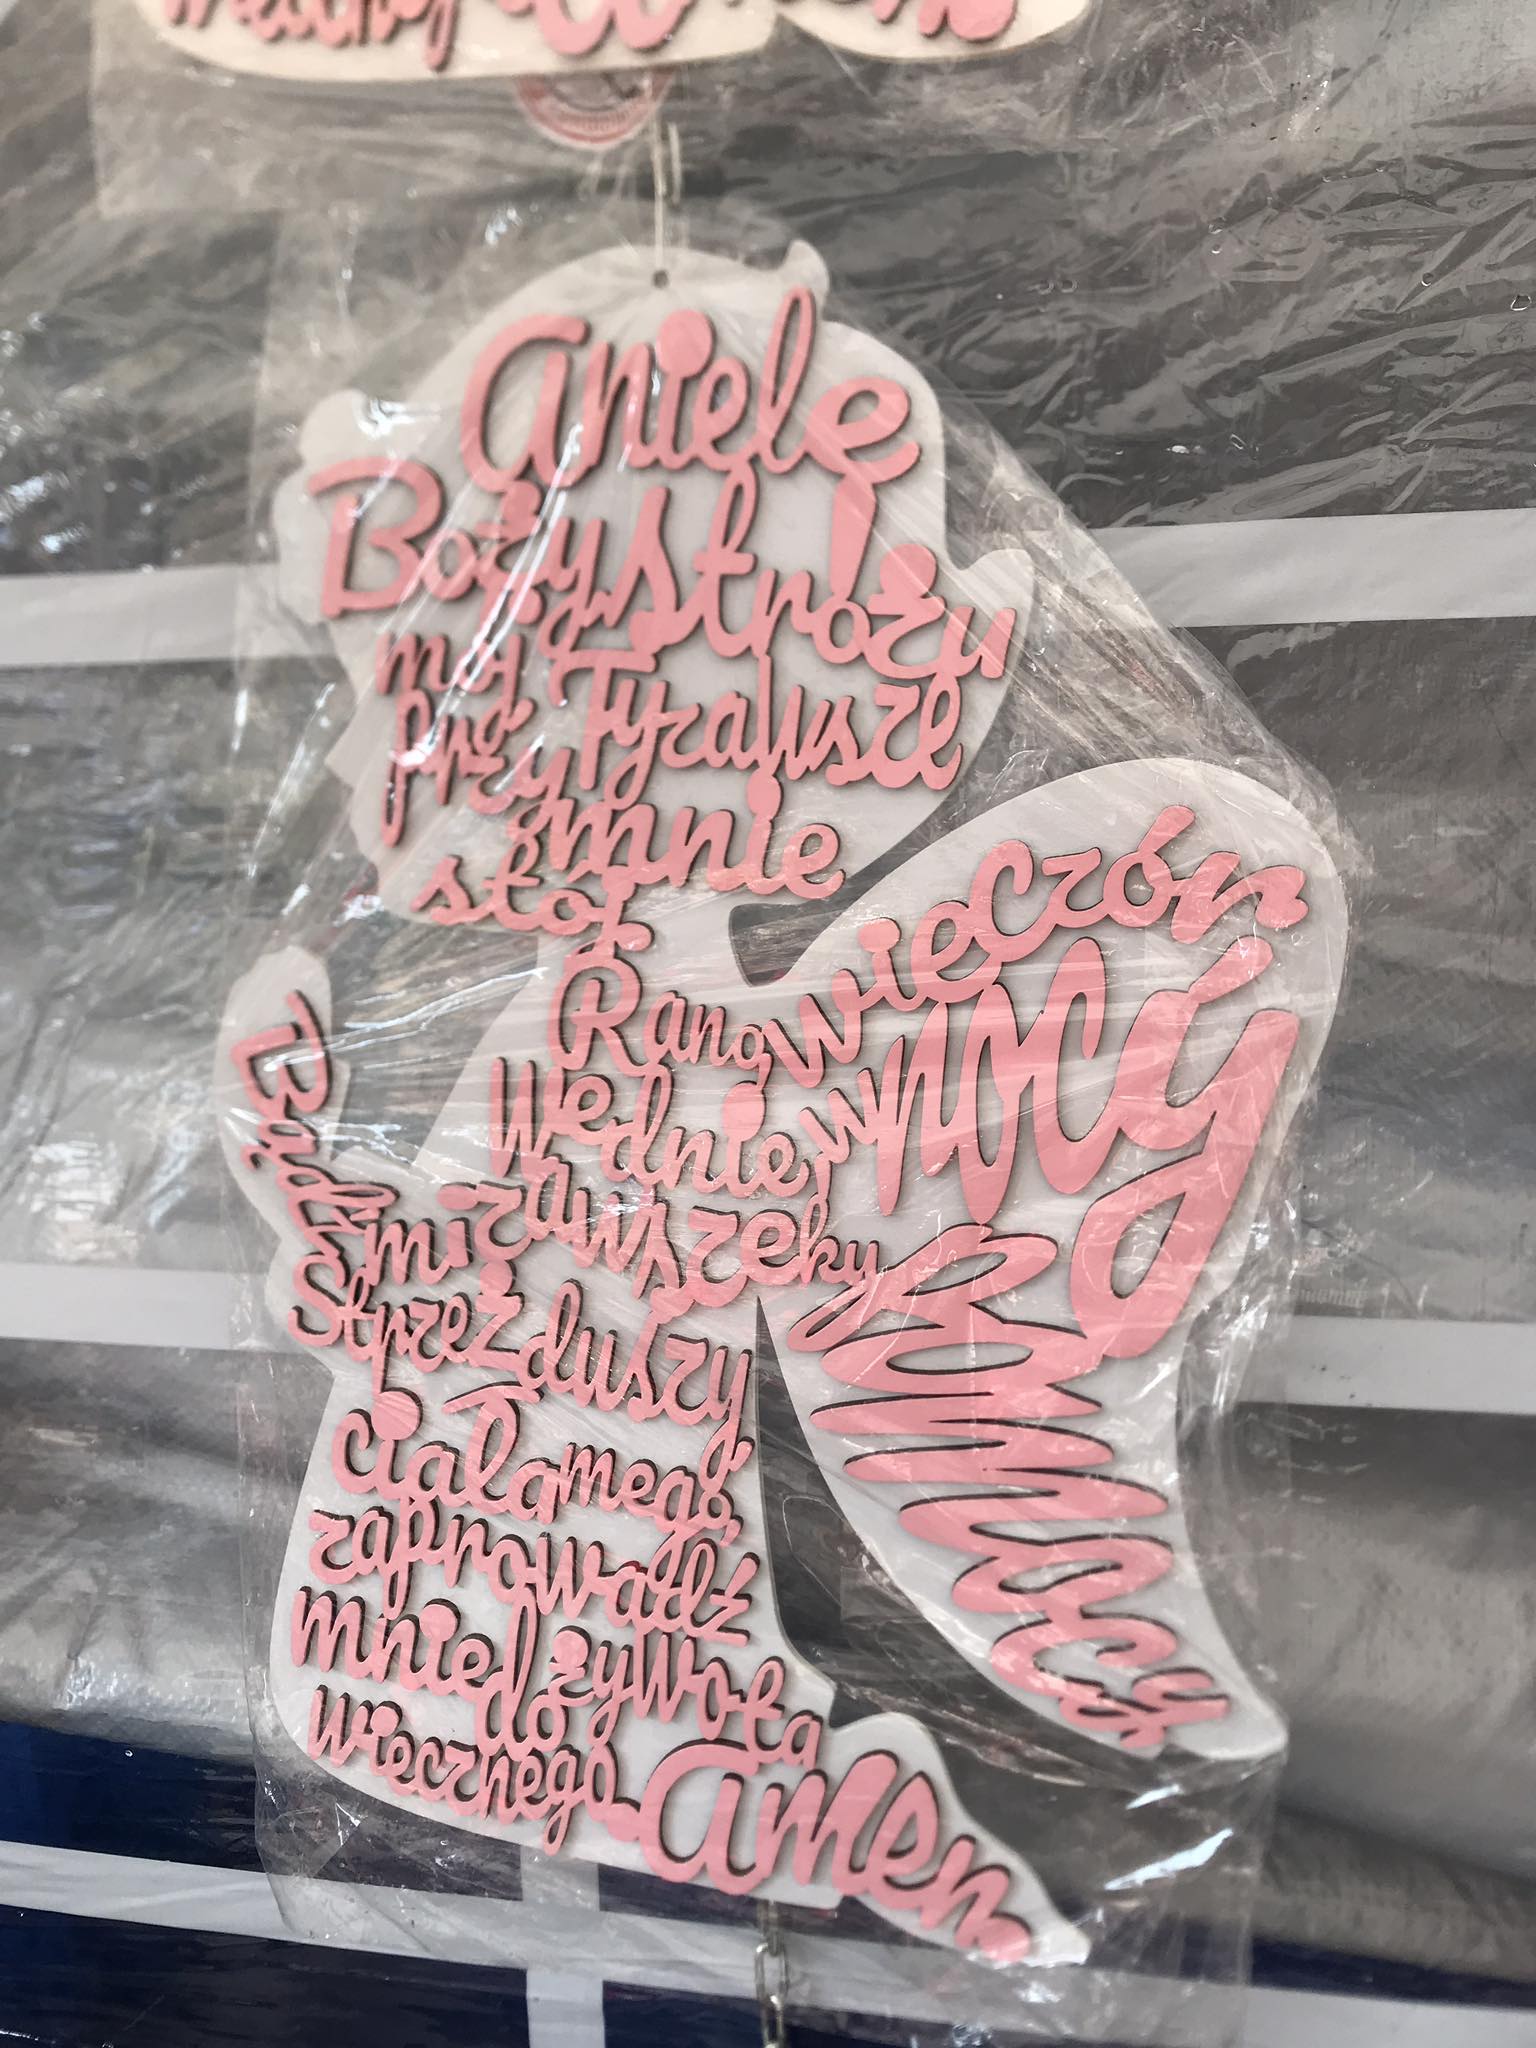 Aniele
Boży stróżu
mój
Ty zawsze
przy
mnie
stój
Rano, wieczór
We dnie, w nocy
Bądź mi zawsze ky pomocy
Strzeż duszy
ciała mego,
zaprowadź
mnie do żywota
wiecznego. Amen